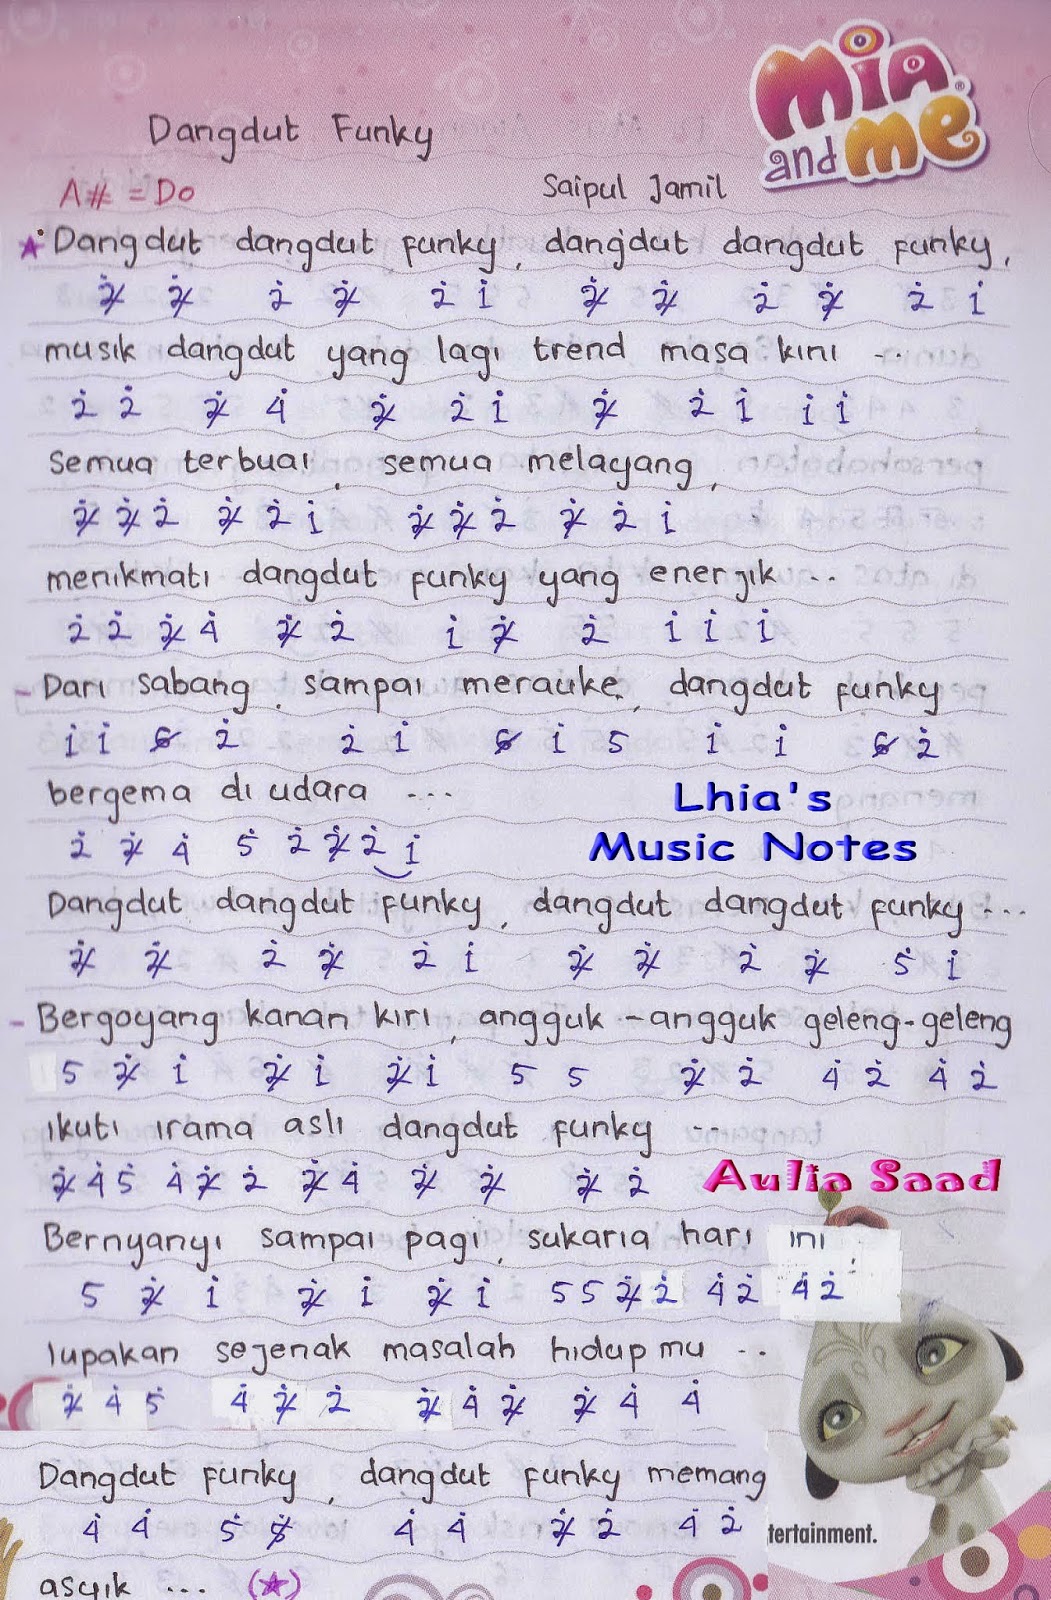 mia and me
Dangdut Funky
A# = Do
Saipul Jamil
★ Dangdut dangdut funky, dangdut dangdut funky,
2̸̇ 2̸̇ 2̇ 2̸̇ 2̇ 1̇ 2̸̇ 2̸̇ 2̇ 2̸̇ 2̇ 1̇
musik dangdut yang lagi trend masa kini ...
2̇ 2̇ 2̸̇ 4̇ 2̸̇ 2̇ 1̇ 2̸̇ 2̇ 1̇ 1̇ 1̇
Semua terbuai, semua melayang,
2̸̇ 2̸̇ 2̇ 2̸̇ 2̇ 1̇ 2̸̇ 2̸̇ 2̇ 2̸̇ 2̇ 1̇
menikmati dangdut funky yang energik ...
2̇ 2̇ 2̸̇ 4̇ 2̸̇ 2̇ 1̇ 2̸̇ 2̇ 1̇ 1̇ 1̇
- Dari sabang, sampai merauke, dangdut funky
1̇ 1̇ 6̸ 2̇ 2̇ 1̇ 6̸ 1̇ 5 1̇ 1̇ 6̸ 2̇
bergema di udara ...
2̇ 2̸̇ 4̇ 5̇ 2̇ 2̸̇ 2̇ 1̇
Lhia's
Music Notes
Dangdut dangdut funky, dangdut dangdut funky ...
2̸̇ 2̸̇ 2̇ 2̸̇ 2̇ 1̇ 2̸̇ 2̸̇ 2̇ 2̸̇ 5̇ 1̇
- Bergoyang kanan kiri, angguk - angguk geleng-geleng
5 2̸̇ 1̇ 2̸̇ 1̇ 2̸̇ 1̇ 5 5 2̸̇ 2̇ 4̇ 2̇ 4̇ 2̇
ikuti irama asli dangdut funky ...
2̸̇ 4̇ 5̇ 4̇ 2̸̇ 2̇ 2̸̇ 4̇ 2̸̇ 2̸̇ 2̸̇ 2̇
Aulia Saad
Bernyanyi sampai pagi, sukaria hari ini
5 2̸̇ 1̇ 2̸̇ 1̇ 2̸̇ 1̇ 5 5 2̸̇ 2̇ 4̇ 2̇ 4̇ 2̇
lupakan sejenak masalah hidup mu ..
2̸̇ 4̇ 5̇ 4̇ 2̸̇ 2̇ 2̸̇ 4̇ 2̸̇ 2̸̇ 4̇ 4̇
Dangdut funky, dangdut funky memang
4̇ 4̇ 5̇ 5̸̇ 4̇ 4̇ 2̸̇ 2̇ 4̇ 2̇
tertainment.
asyik ... (★)